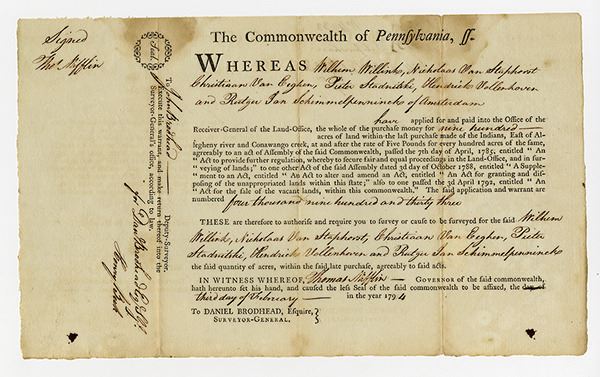 The Commonwealth of Pennsylvania, ſſ.
WHEREAS Wilhem Willink, Nicholaas Van Staphorst
Christiaan Van Eeghen, Pieter Stadnitski, Hendrick Vollenhoven
and Rutger Jan Schimmelpenninck of Amsterdam
have applied for and paid into the Office of the
Receiver-General of the Land-Office, the whole of the purchase money for nine hundred
acres of land within the last purchase made of the Indians, Eaſt of Al-
legheny river and Conawango creek, at and after the rate of Five Pounds for every hundred acres of the ſame,
agreeably to an act of Aſſembly of the ſaid Commonwealth, paſſed the 7th day of April, 1785, entitled “ An
“ Act to provide further regulation, whereby to ſecure fair and equal proceedings in the Land-Office, and in ſur-
“ veying of lands,” to one other Act of the ſaid Aſſembly dated 3d day of October 1788, entitled “ A Supple-
“ ment to land, entitled “ An Act to alter and amend an Act, entitled “ An Act for granting and diſ-
poſing of the unappropriated lands within this ſtate;” alſo to one paſſed the 3d April 1792, entitled “ An
“ Act for the ſale of vacant lands, within this commonwealth.” The ſaid application and warrant are
numbered four thousand nine hundred and thirty three
THESE are therefore to authoriſe and require you to ſurvey or cauſe to be ſurveyed for the ſaid Wilhem
Willink, Nicholaas Van Staphorst, Christiaan Van Eeghen, Pieter
Stadnitski, Hendrick Vollenhoven and Rutger Jan Schimmelpenninck
the ſaid quantity of acres, within the ſaid late purchaſe, agreeably to ſaid acts.
IN WITNESS WHEREOF, Thomas Mifflin GOVERNOR of the ſaid commonwealth,
hath hereunto ſet his hand, and cauſed the leſs Seal of the ſaid commonwealth to be affixed, the day of
third day of February in the year 1794
To DANIEL BRODHEAD, Eſquire,
SURVEYOR-GENERAL.
Signed
Tho Mifflin
Seal.
To John Brodhead Deputy-Surveyor.
Execute this warrant, and make return thereof into the
Surveyor-General's office, according to law.
for Dan Brodhead Esq